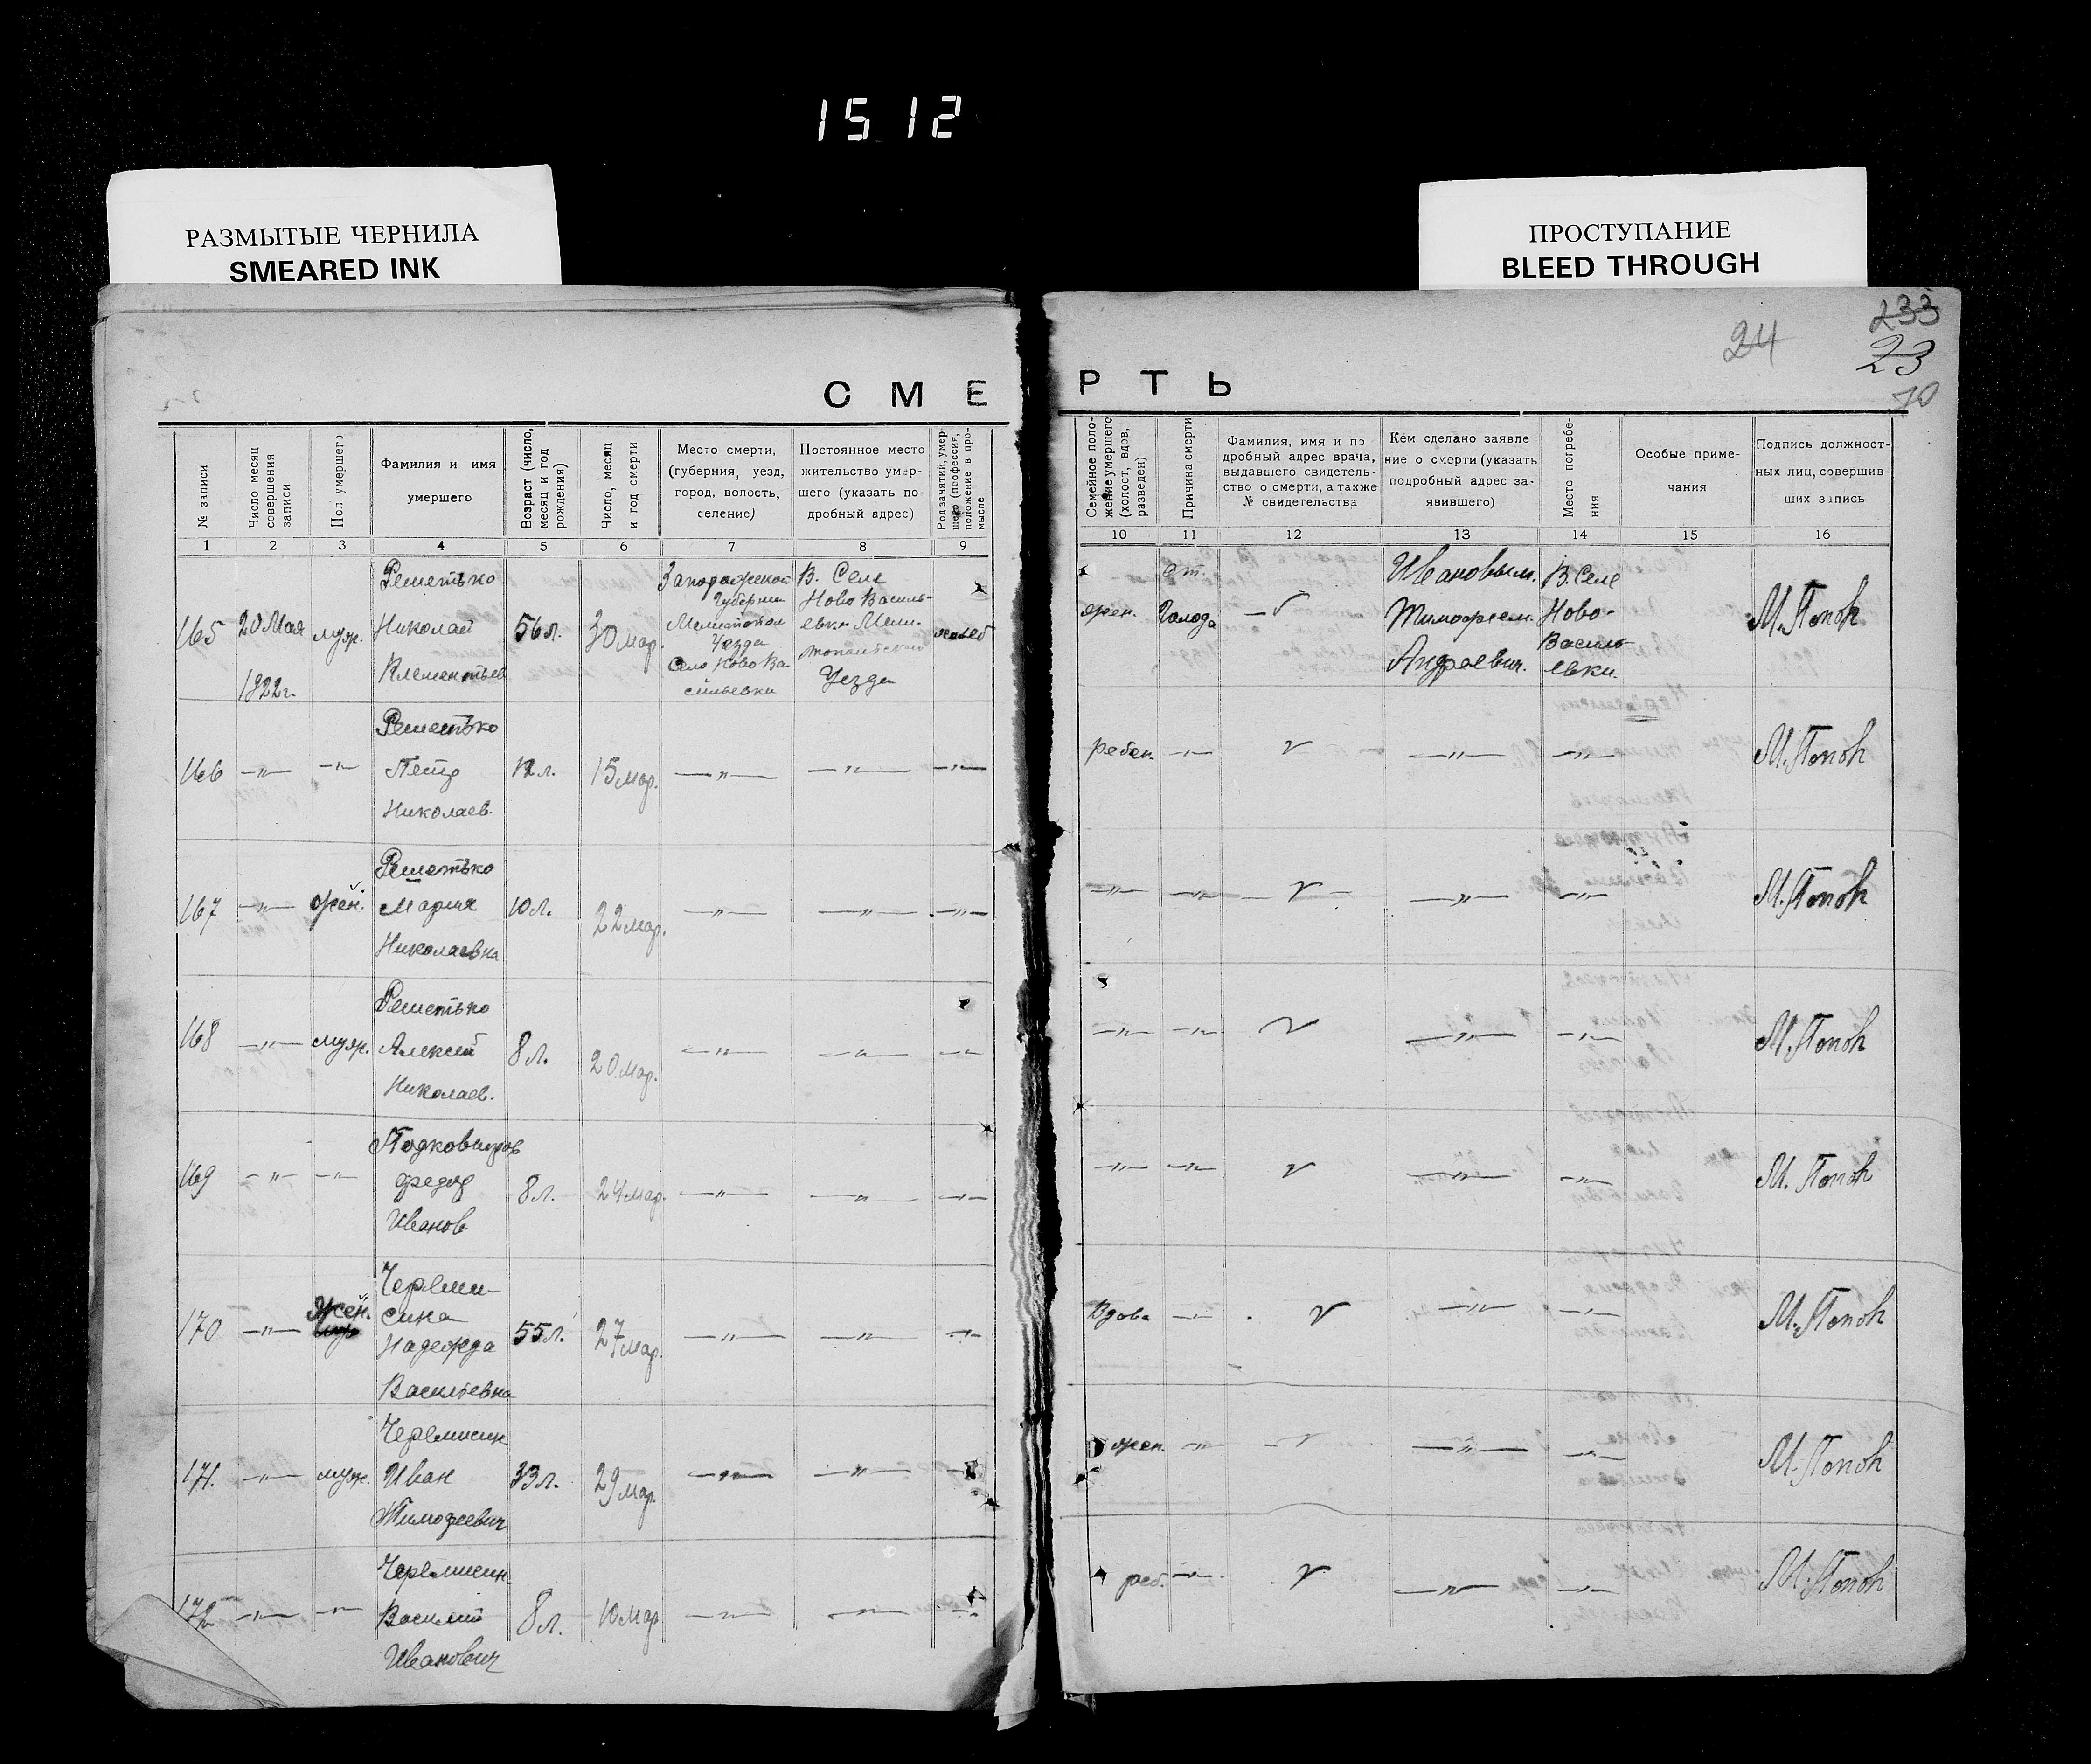 15 12
РАЗМЫТЫЕ ЧЕРНИЛА
SMEARED INK
ПРОСТУПАНИЕ
BLEED THROUGH
24
233
23
10
СМЕРТЬ
№ записи
Число месяц совершения записи
Пол умершего
Фамилия и имя умершего
Возраст (число, месяц и год рождения)
Число, месяц и год смерти
Место смерти, (губерния, уезд, город, волость, селение)
Постоянное место жительство умершего (указать подробный адрес)
Род занятий, умершего (профессия, положение в промысле
Семейное положение умершего (холост, вдов, разведен)
Причина смерти
Фамилия, имя и подробный адрес врача, выдавшего свидетельство о смерти, а также № свидетельства
Кем сделано заявление о смерти (указать подробный адрес заявившего)
Место погребения
Особые примечания
Подпись должностных лиц, совершивших запись
1 2 3 4 5 6 7 8 9 10 11 12 13 14 15 16
165 20 Мая 1922г. муж. Решетько Николай Клементьев 56 л. 30 мар. Запорожской Губернии Уезда Село Ново Васильевки В. Селе Ново Васильевки Уезда
жен. от Голода Ивановым Тимофеем Андреевич. В. Селе Ново-Васильевки. М. Попов
166 —"— —"— Решетько Петр Николаев. 12 л. 15 мар. —"— —"— —"—
ребен. —"— —"— —"— М. Попов
167 —"— жен. Решетько Мария Николаевна 10 л. 22 мар. —"— —"— —"—
—"— —"— —"— —"— М. Попов
168 —"— муж. Решетько Алексей Николаев. 8 л. 20 мар. —"— —"— —"—
—"— —"— —"— —"— М. Попов
169 —"— —"— Федор Иванов 8 л. 24 мар. —"— —"— —"—
—"— —"— —"— —"— М. Попов
170 —"— жен. Черемисина Надежда Васильевна 55 л. 27 мар. —"— —"— —"—
Вдова —"— —"— —"— М. Попов
171. —"— муж. Черемисин Иван Тимофеевич 33 л. 29 мар. —"— —"—
жен. —"— —"— —"— М. Попов
172 —"— —"— Черемисин Василий Иванович 8 л. 10 мар. —"— —"— —"—
реб. —"— —"— —"— М. Попов